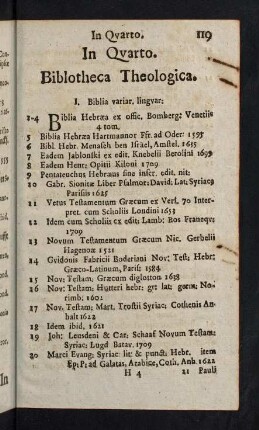 In Qvarto. 119
In Qvarto.
Biblotheca Theologica.
I. Biblia variar. lingvar:
1-4 Biblia Hebræa ex offic. Bomberg: Venetiis
4 tom.
5 Biblia Hebræa Hartmannor Fft. ad Oder: 1595
6 Bibl. Hebr. Menaseh ben Israel, Amstel. 1635
7 Eadem Jablonski ex edit. Knebelii Berolini 1699
8 Eadem Henr: Opitii Kiloni 1709
9 Pentateuchus Hebraus sine inscr. edit. nit:
10 Gabr. Sionitæ Liber Psalmor: David: Lat: Syriace
Parisiis 1625
11 Vetus Testamentum Græcum ex Vers. 70 Inter-
pret. cum Scholiis Londini 1653
12 Idem cum Scholiis ex edit: Lamb: Bos Franeqv:
1709
13 Novum Testamentum Græcum Nic. Gerbelii
Hagenoæ 1521
14 Gvidonis Fabricii Boderiani Nov: Test: Hebr:
Græco-Latinum, Paris: 1584
15 Nov: Testam. Græcum diglotton 1638
16 Nov: Testam: Hutteri hebr: gr: lat: No-
rimb: 1602
17 Nov: Testam: Mart. Trostii Syriac: Cothenis An-
halt 1622
18 Idem ibid, 1621
19 Joh: Leusdeni & Car. Schaaf Novum Testam:
Syriac: Lugd Batav. 1709
20 Marci Evang: Syriac: lit: & punct: Hebr. item
Ep: P: ad Galatas, Arabice, Coth. Anh. 1622
H 4 21 Pauli
In